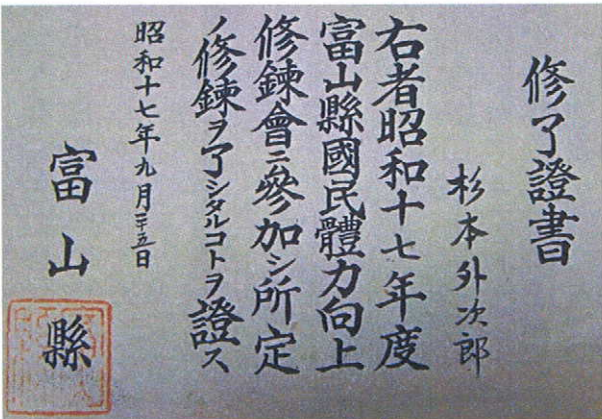 修了證書
杉本外次郎
右者昭和十七年度
富山縣國民體力向上
修鍊會ニ參加シ所定
ノ修鍊ヲ了シタルコトヲ證ス
昭和十七年九月二十五日
富山縣